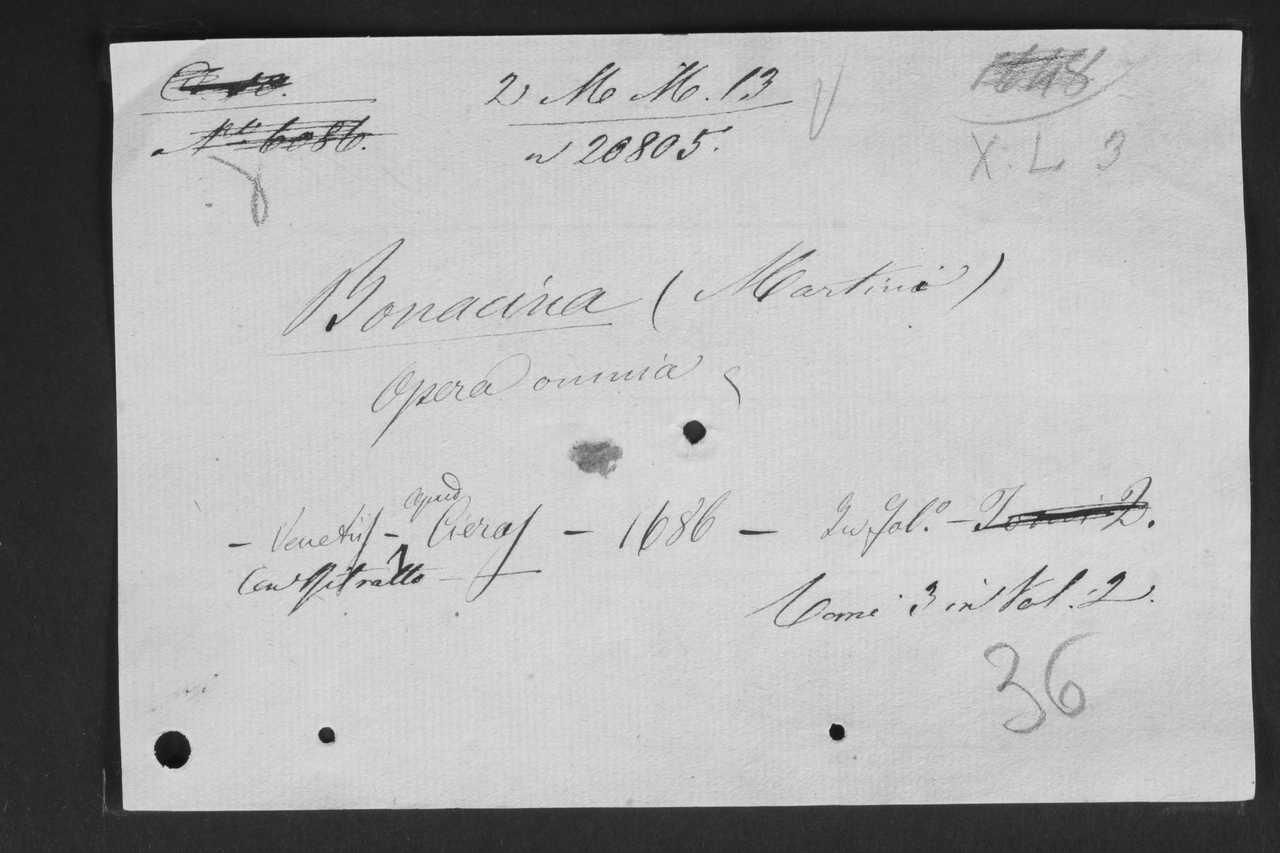 2 M M. 13
n 20805.
No 6086.
X. L 3
Bonacina (Martini)
Opera omnia
- Venetijs - apud Cieras - 1686 - In Fol.o - Tomi 2.
Con Ritratto
Tomi 3 in Vol. 2.
36